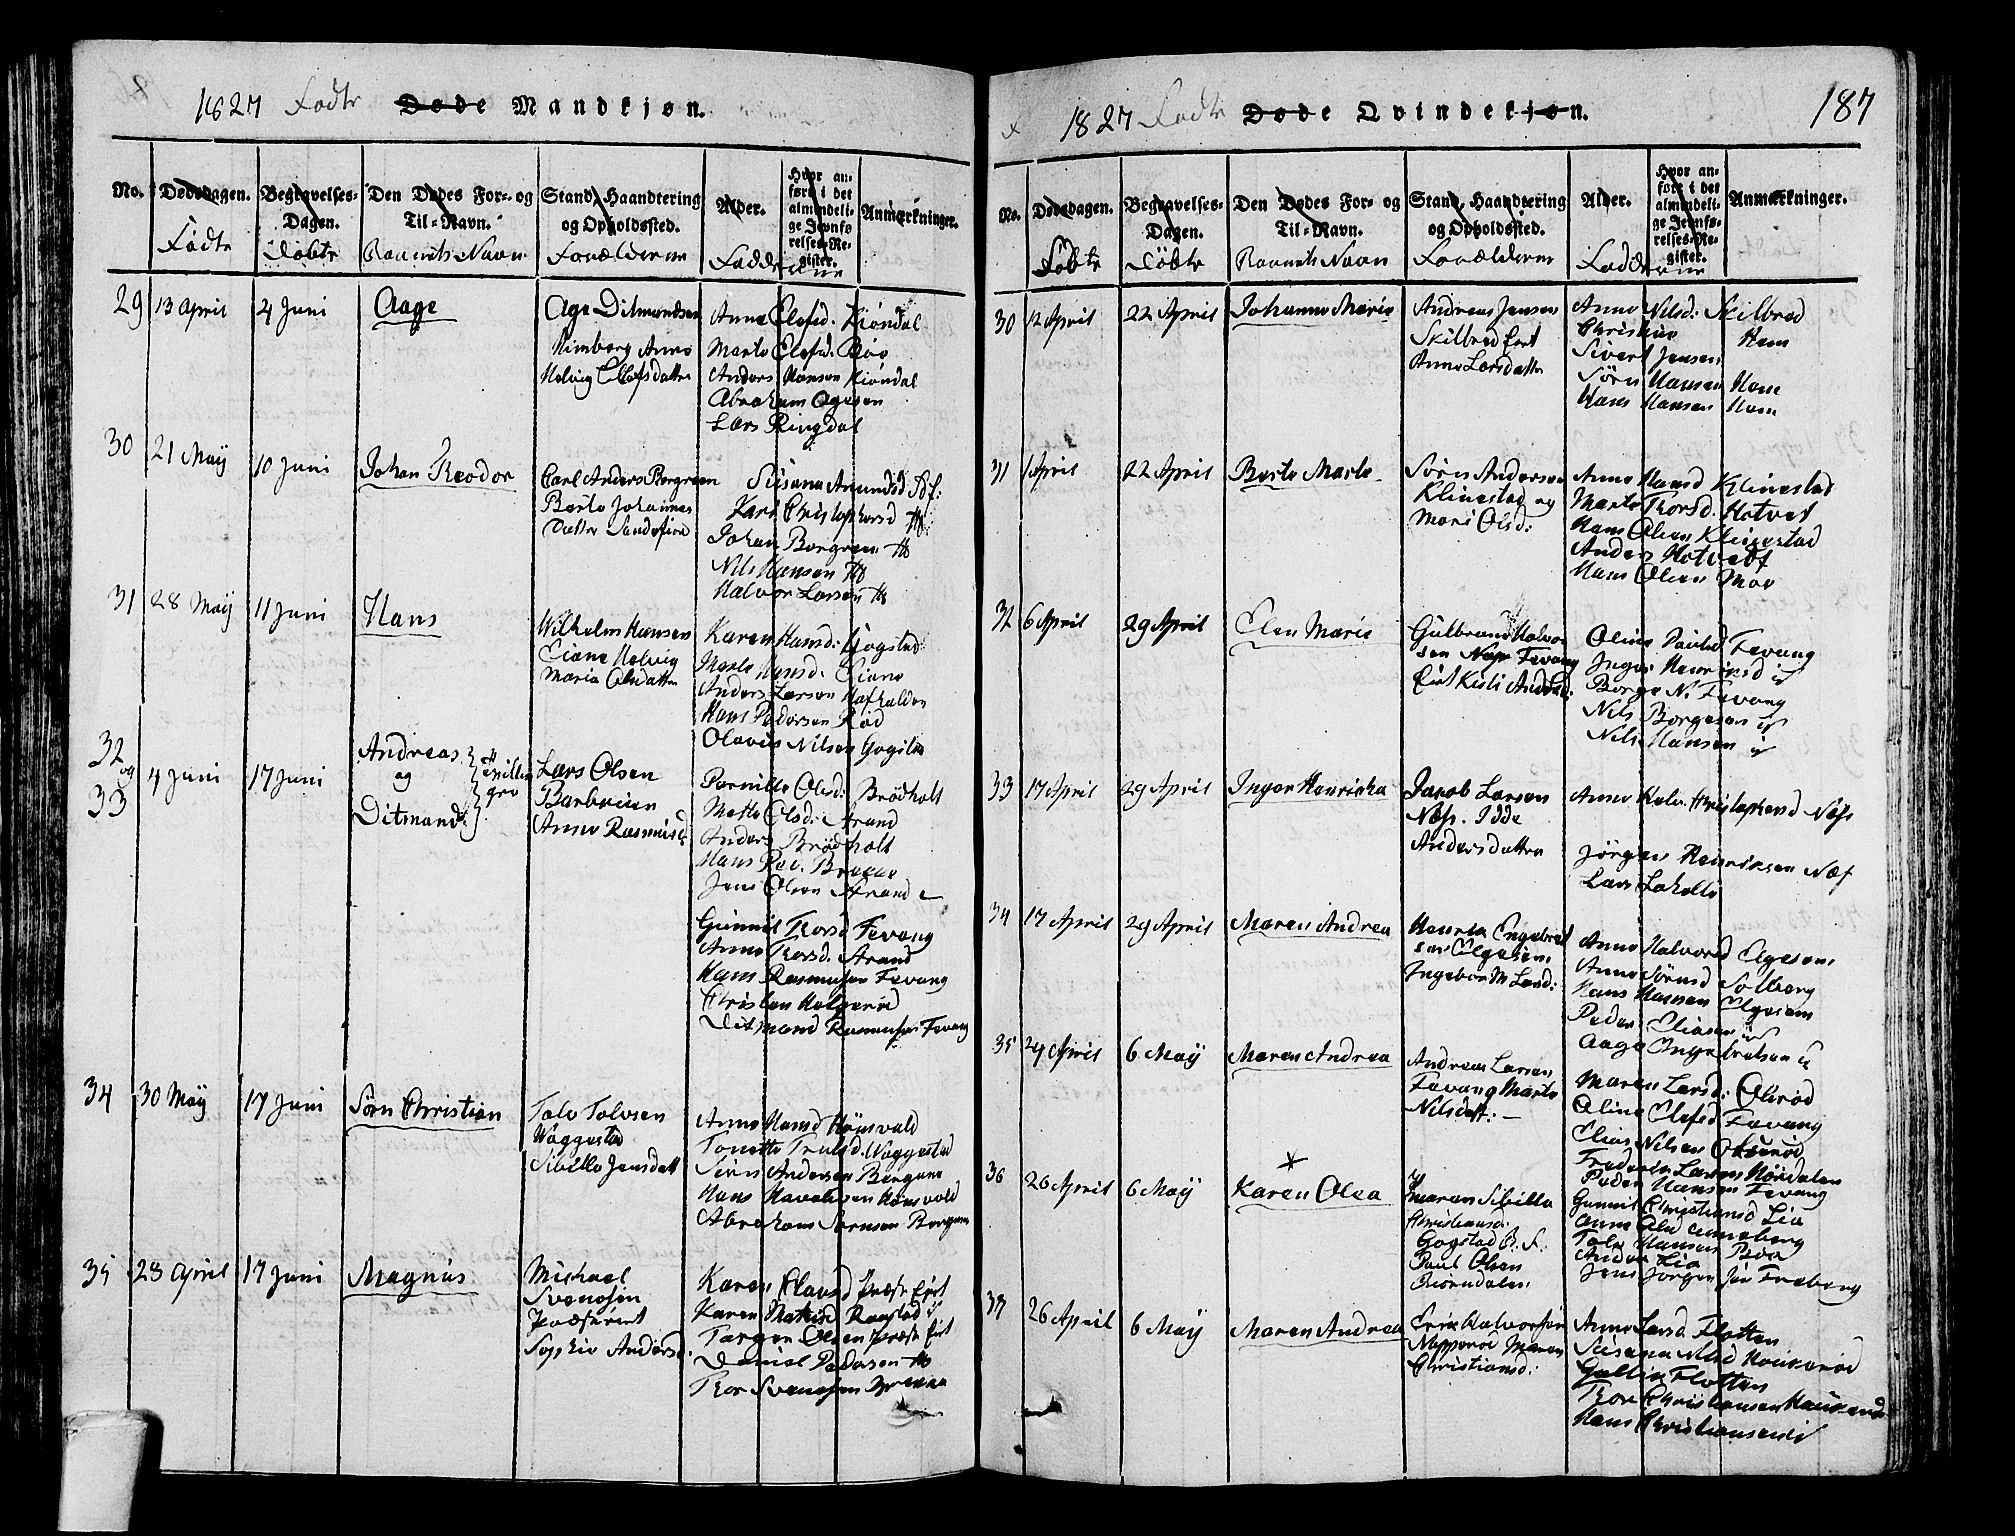 1827 Fødte Døde Mandkjøn.
No.
Dødsdagen.
Fødte
Begravelses-
Dagen.
Døbte
Den Dødes For- og
Til-Navn.
Barnets Navn
Stand, Haandtering
og Opholdssted.
Forældrene
Alder.
Hvor an-
ført i det
almindeli-
ge Jevnfø-
relses-Re-
gister.
Fadderne
Anmærkninger.
29 13 April 4 Juni Aage
Age Ditmundsen
Himberg Anne
Helvig Elofsdatter
Anne Elofsd. Kiøndal
Marte Elofsd. Bøe
Anders Hansen Kiøndal
Abraham Agesen
Lars Ringdal
30 21 Maÿ 10 Juni Johan Teodor
Carl Anders Borgreen
Berte Johannes
Datter Sandefiord
Susana Amundsd Sdf:
Kari Christophersd
Johan Borgreen
Nils Hansen
Halvor Larsen
31 28 Maÿ 11 Juni Hans
Wilhelm Hansen
Siane Helvig
Maria Olsdatter
Karen Hansd: Gogstad
Marte Hansd. Siane
Anders Larsen Hafhalden
Hans Pedersen Rød
Olavus Nilsen Gogstad
32
og
33
4 Juni 17 Juni
Andreas
og
Ditmand
Tvillin
gre
Lars Olsen
Anne Rasmusd
Pernille Olsd: Brødholt
Mette Olsd: Strand
Anders Brødholt
Jens Olsen Strand
Gunnil Torsd Fevang
Anne Torsd. Strand
Hans Rasmusen Fevang
Christen
Ditmand Rasmusen Fevang
34 30 Maÿ 17 Juni Sørn Christian
Tolv Tolvsen
Waggestad
Sibille Jensdatt
Anne Hansd Hømsvald
Tonette Trulsd. Waggestad
Siøn Andersen Bergane
Hans Havelsen Hømsvold
Abraham Sørnsen Bergane
35 23 April 17 Juni Magnus
Michael
Svendsen
Præsteeiet
Sophie Andersd.
Karen Olausd Præste Eiet
Karen Mathisd Ranstad
Torger Olsen Præste Eiet
Daniel Pedersen
Tor Svendsen
1827 Fødte Døde Qvindekjøn. 187
No.
Dødsdagen.
Fødte
Begravelses-
Dagen.
Døbte
Den Dødes For- og
Til-Navn.
Barnets Navn
Stand, Haandtering
og Opholdssted.
Forældrene
Alder.
Hvor an-
ført i det
almindeli-
ge Jevnfø-
relses-Re-
gister.
Fadderne
Anmærkninger.
30 12 April 22 April Johanne Marie
Andreas Jensen
Skilbred Eiet
Anne Larsdatter
Anne Nilsd: Skilbred
Christine Hem
Sivert Jensen
Sørn Hansen Hem
Hans Hansen Hem
31 1 April 22 April Berte Marte
Sørn Andersen
Klinestad og
Mari Olsd:
Anne Hansd Klinestad
Marte Torsd. Hotvet
Hans Olsen Klinestad
Anders Hotvedt
Hans Olsen Moe
32 6 April 29 April Elen Marie
Gulbrand Halvor
sen Fevang
Eiet Kisti Andersd.
Oline Davidsd Fevang
Inger Henriksd
Børge N. Fevang
Nils Børgesen
Nils Hansen
33 17 April 29 April Inger Henricka
Jacob Larsen
Næss. Idde
Andersdatter
Anne Kelv. Christophersd Næss
Jørgen Henriksen Næss
Lars
34 17 April 29 April Maren Andrea
Henrik Engebret
sen Elgesem
Ingebor M. Larsd:
Anne Halvorsd Elgesem
Anne Sørnsd Solberg
Hans Hansen Elgesem
Peder Eliasen
Aage Ingebretsen
35 24 April 6 Maÿ Maren Andrea
Andreas Larsen
Fevang Marte
Nilsdatt:
Maren Larsd: Olerød
Oline Elofsd Fevang
Elias Nilsen
Frederik Larsen Hørdalen
Peder Hansen Fevang
36 26 April 6 Maÿ Karen Olea
Maren Sibilla
Christiansd:
Gogstad B. F.:
Paul Olsen
Biørndalen
Gunnil Christiansd Lie
Anne Olsd Anneberg
Tolv Hansen Bøe
Anders Lie
Jens Jørgen Jør Freberg
37 26 April 6 Maÿ Maren Andrea
Erik Halvorsen
Napperød Maren
Christiansd:
Anne Larsd. Flotten
Susana Nilsd Haukerød
Gullik Flotten
Tor Christiansen Haukerød
Hans Christiansen